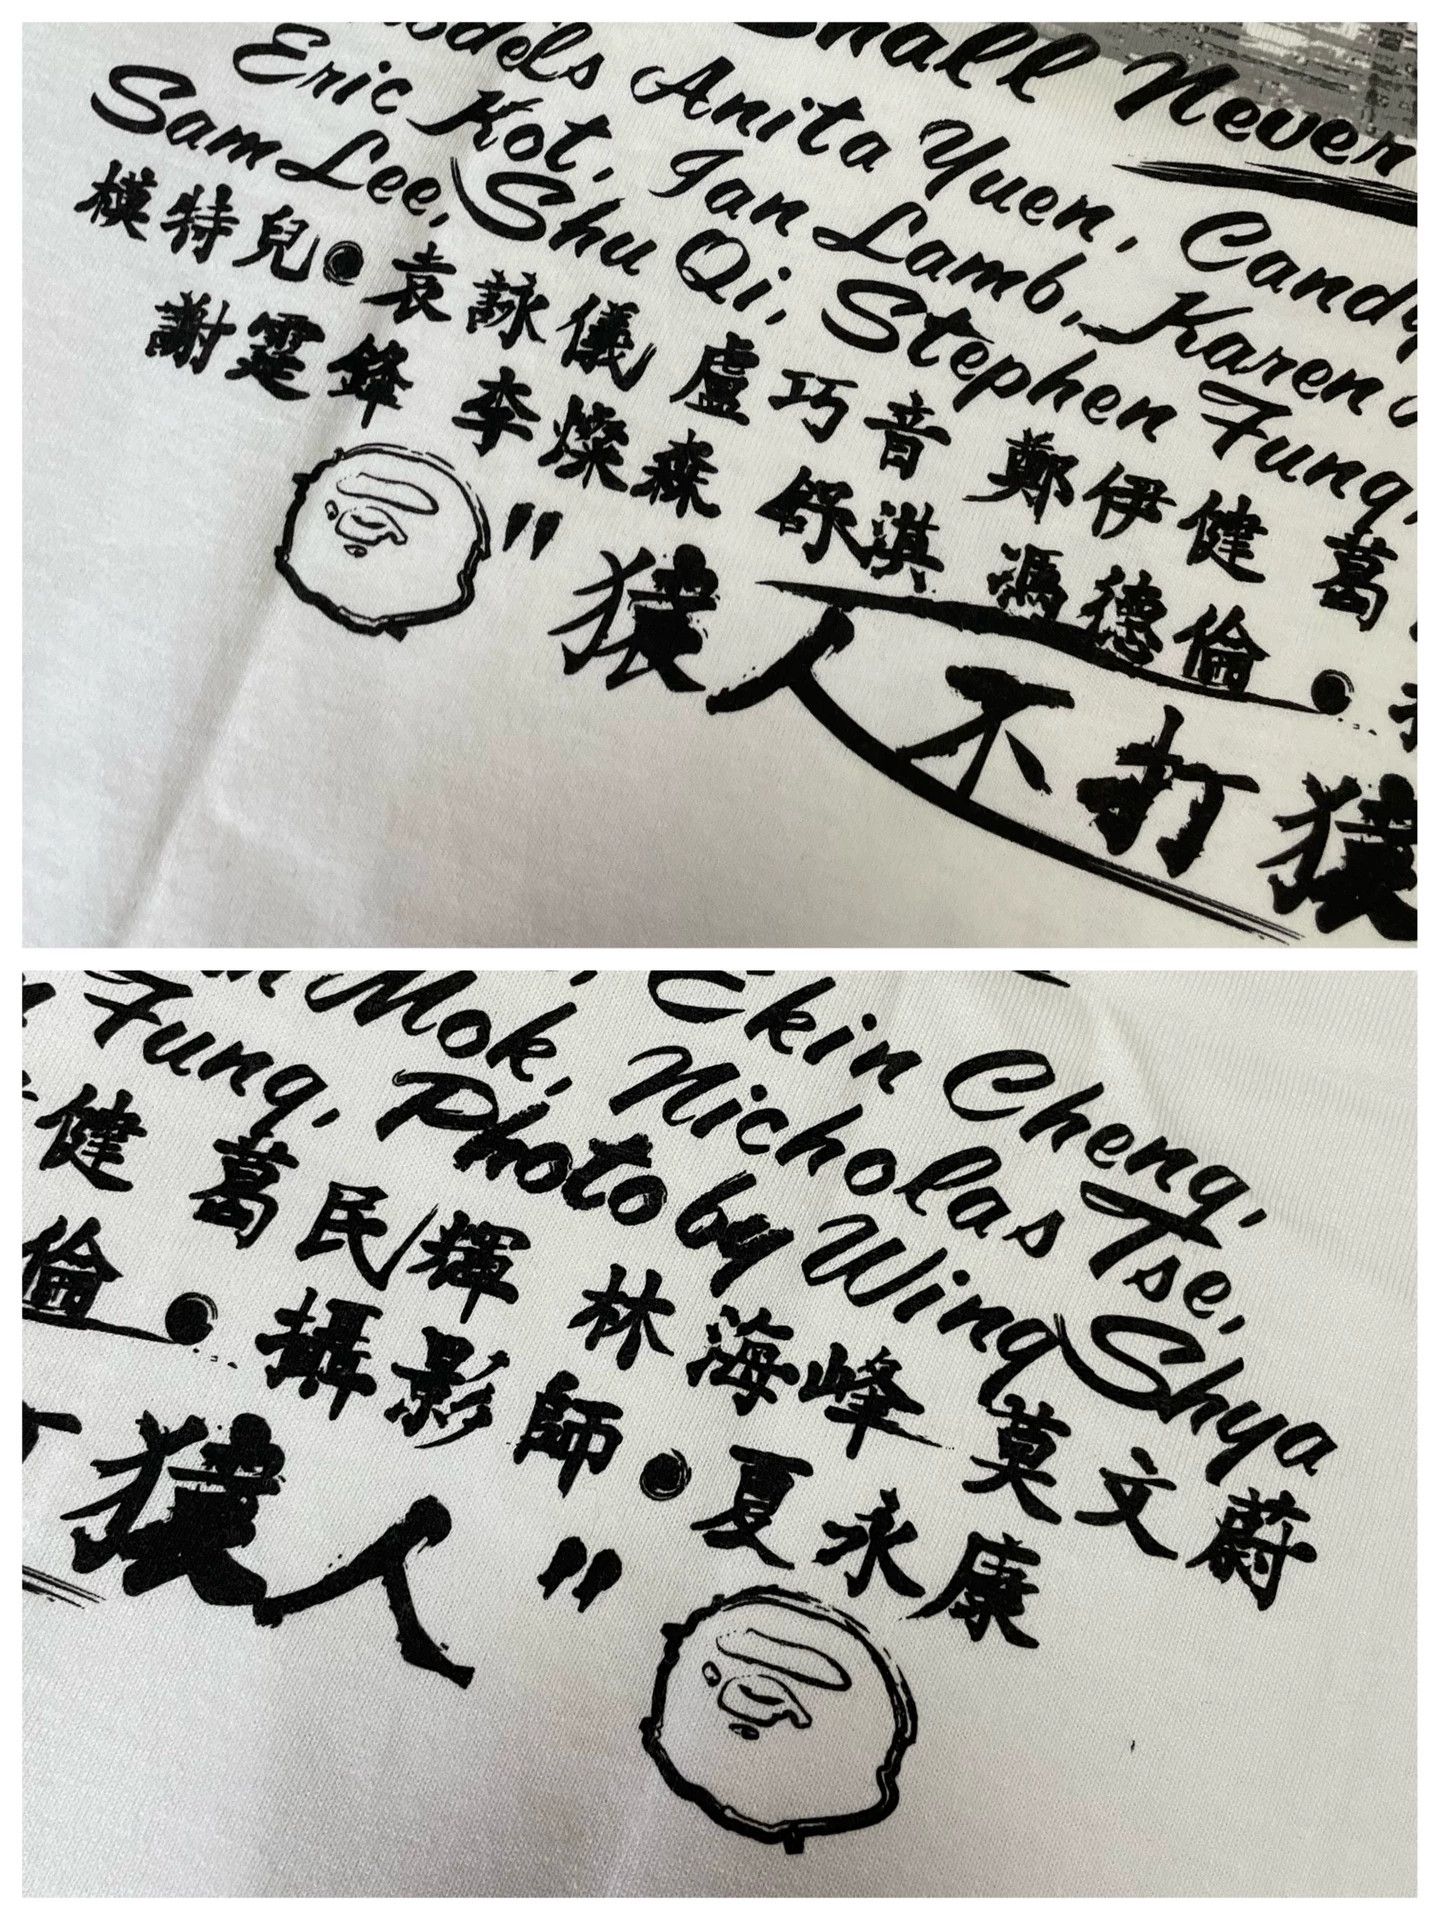 Shall Never
Models Anita Yuen, Candy
Eric Kot, Jan Lamb, Karen
Sam Lee, Shu Qi, Stephen Fung,
模特兒●袁詠儀 盧巧音 鄭伊健 葛
謝霆鋒 李燦森 舒淇 馮德倫●
"猿人不打猿
Ekin Cheng,
Mok, Nicholas Tse,
Fung, Photo by Wing Shya
健 葛民輝 林海峰 莫文蔚
倫●攝影師●夏永康
打猿人"